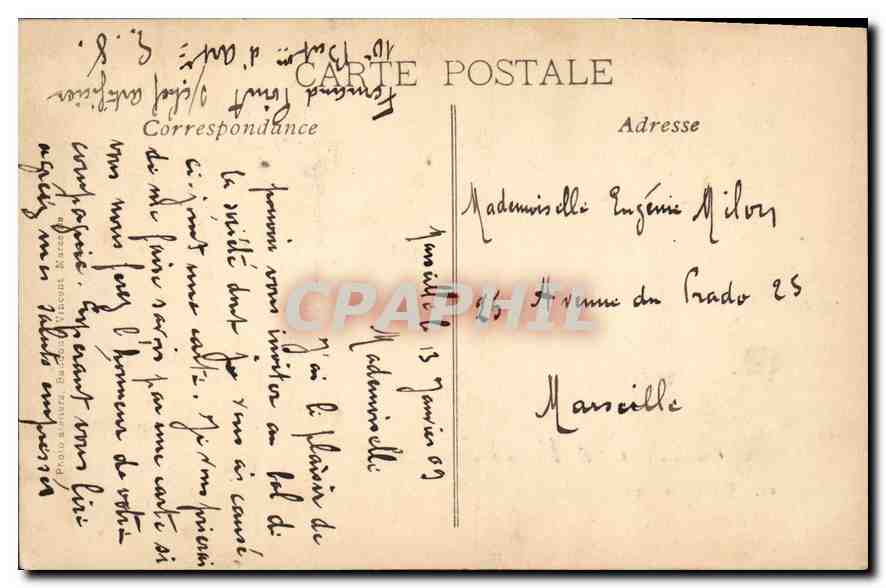 CARTE POSTALE
Correspondance
Adresse
Mademoiselle Eugénie Milon
25 Avenue du Prado 25
Marseille
Marseille le 13 Janvier 09
Mademoiselle
J'ai le plaisir de
pouvoir vous inviter au bal de
la société dont je vous ai causé,
ci-joint une carte. Je vous prierai
de me faire savoir par une carte si
vous nous ferez l'honneur de votre
compagnie. Espérant vous lire
agréez mes saluts empressés
Fernand artificier
10e d'Art
CPAPHIL